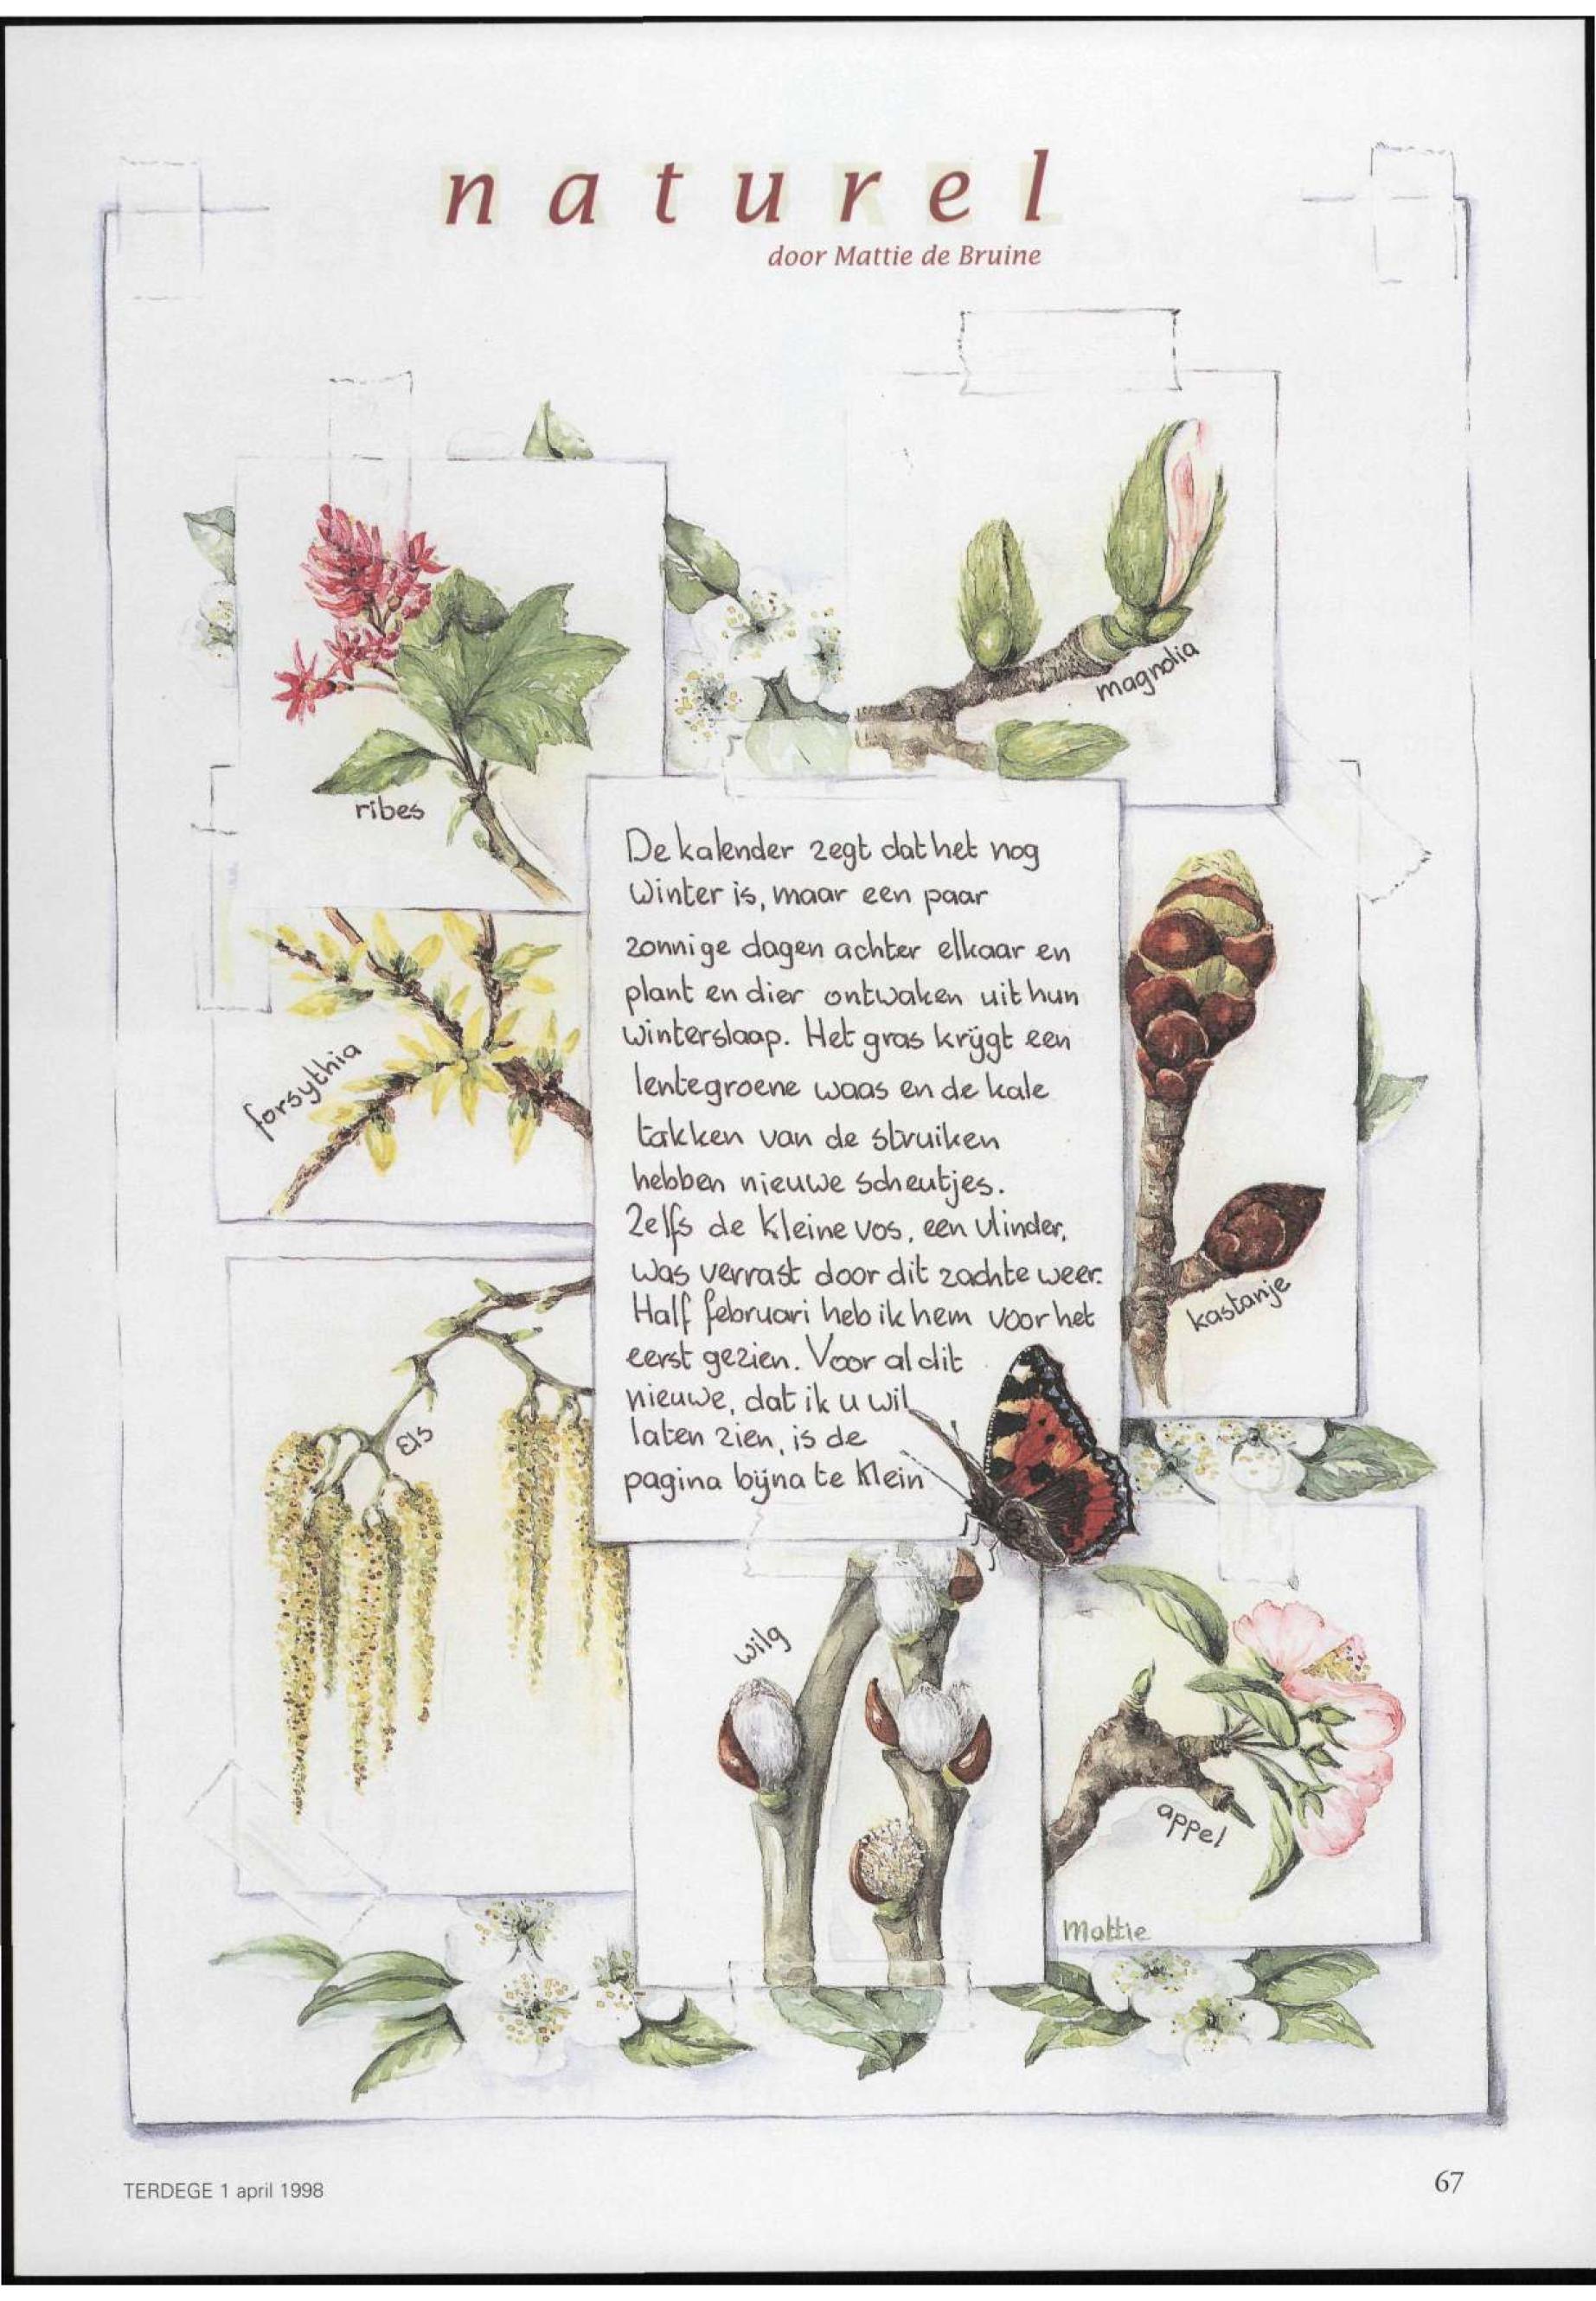 naturel
door Mattie de Bruine
magnolia
ribes
De kalender zegt dat het nog
Winter is, maar een paar
zonnige dagen achter elkaar en
plant en dier ontwaken uit hun
winterslaap. Het gras krijgt een
lentegroene waas en de kale
takken van de struiken
hebben nieuwe scheutjes.
Zelfs de kleine vos, een vlinder,
was verrast door dit zachte weer.
Half februari heb ik hem voor het
eerst gezien. Voor al dit
nieuwe, dat ik u wil
laten zien, is de
pagina bijna te klein
forsythia
kastanje
Els
wilg
appel
Mattie
TERDEGE 1 april 1998
67